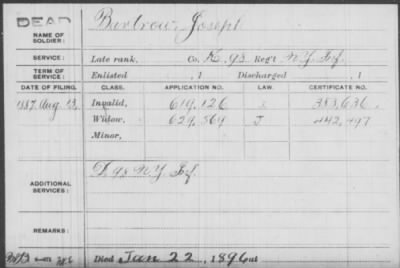 DEAD
NAME OF SOLDIER: Barlow, Joseph
SERVICE: Late rank, Co. K, 93 Reg't N.Y. Inf.
TERM OF SERVICE: Enlisted , 1 Discharged , 1
DATE OF FILING. CLASS. APPLICATION NO. LAW. CERTIFICATE NO.
1887, Aug. 13, Invalid, 619,126 383,636
Widow, 629,569 J 442,497
Minor,
ADDITIONAL SERVICES: D. 98 N.Y. Inf.
REMARKS:
Died Jan 22, 1896 at